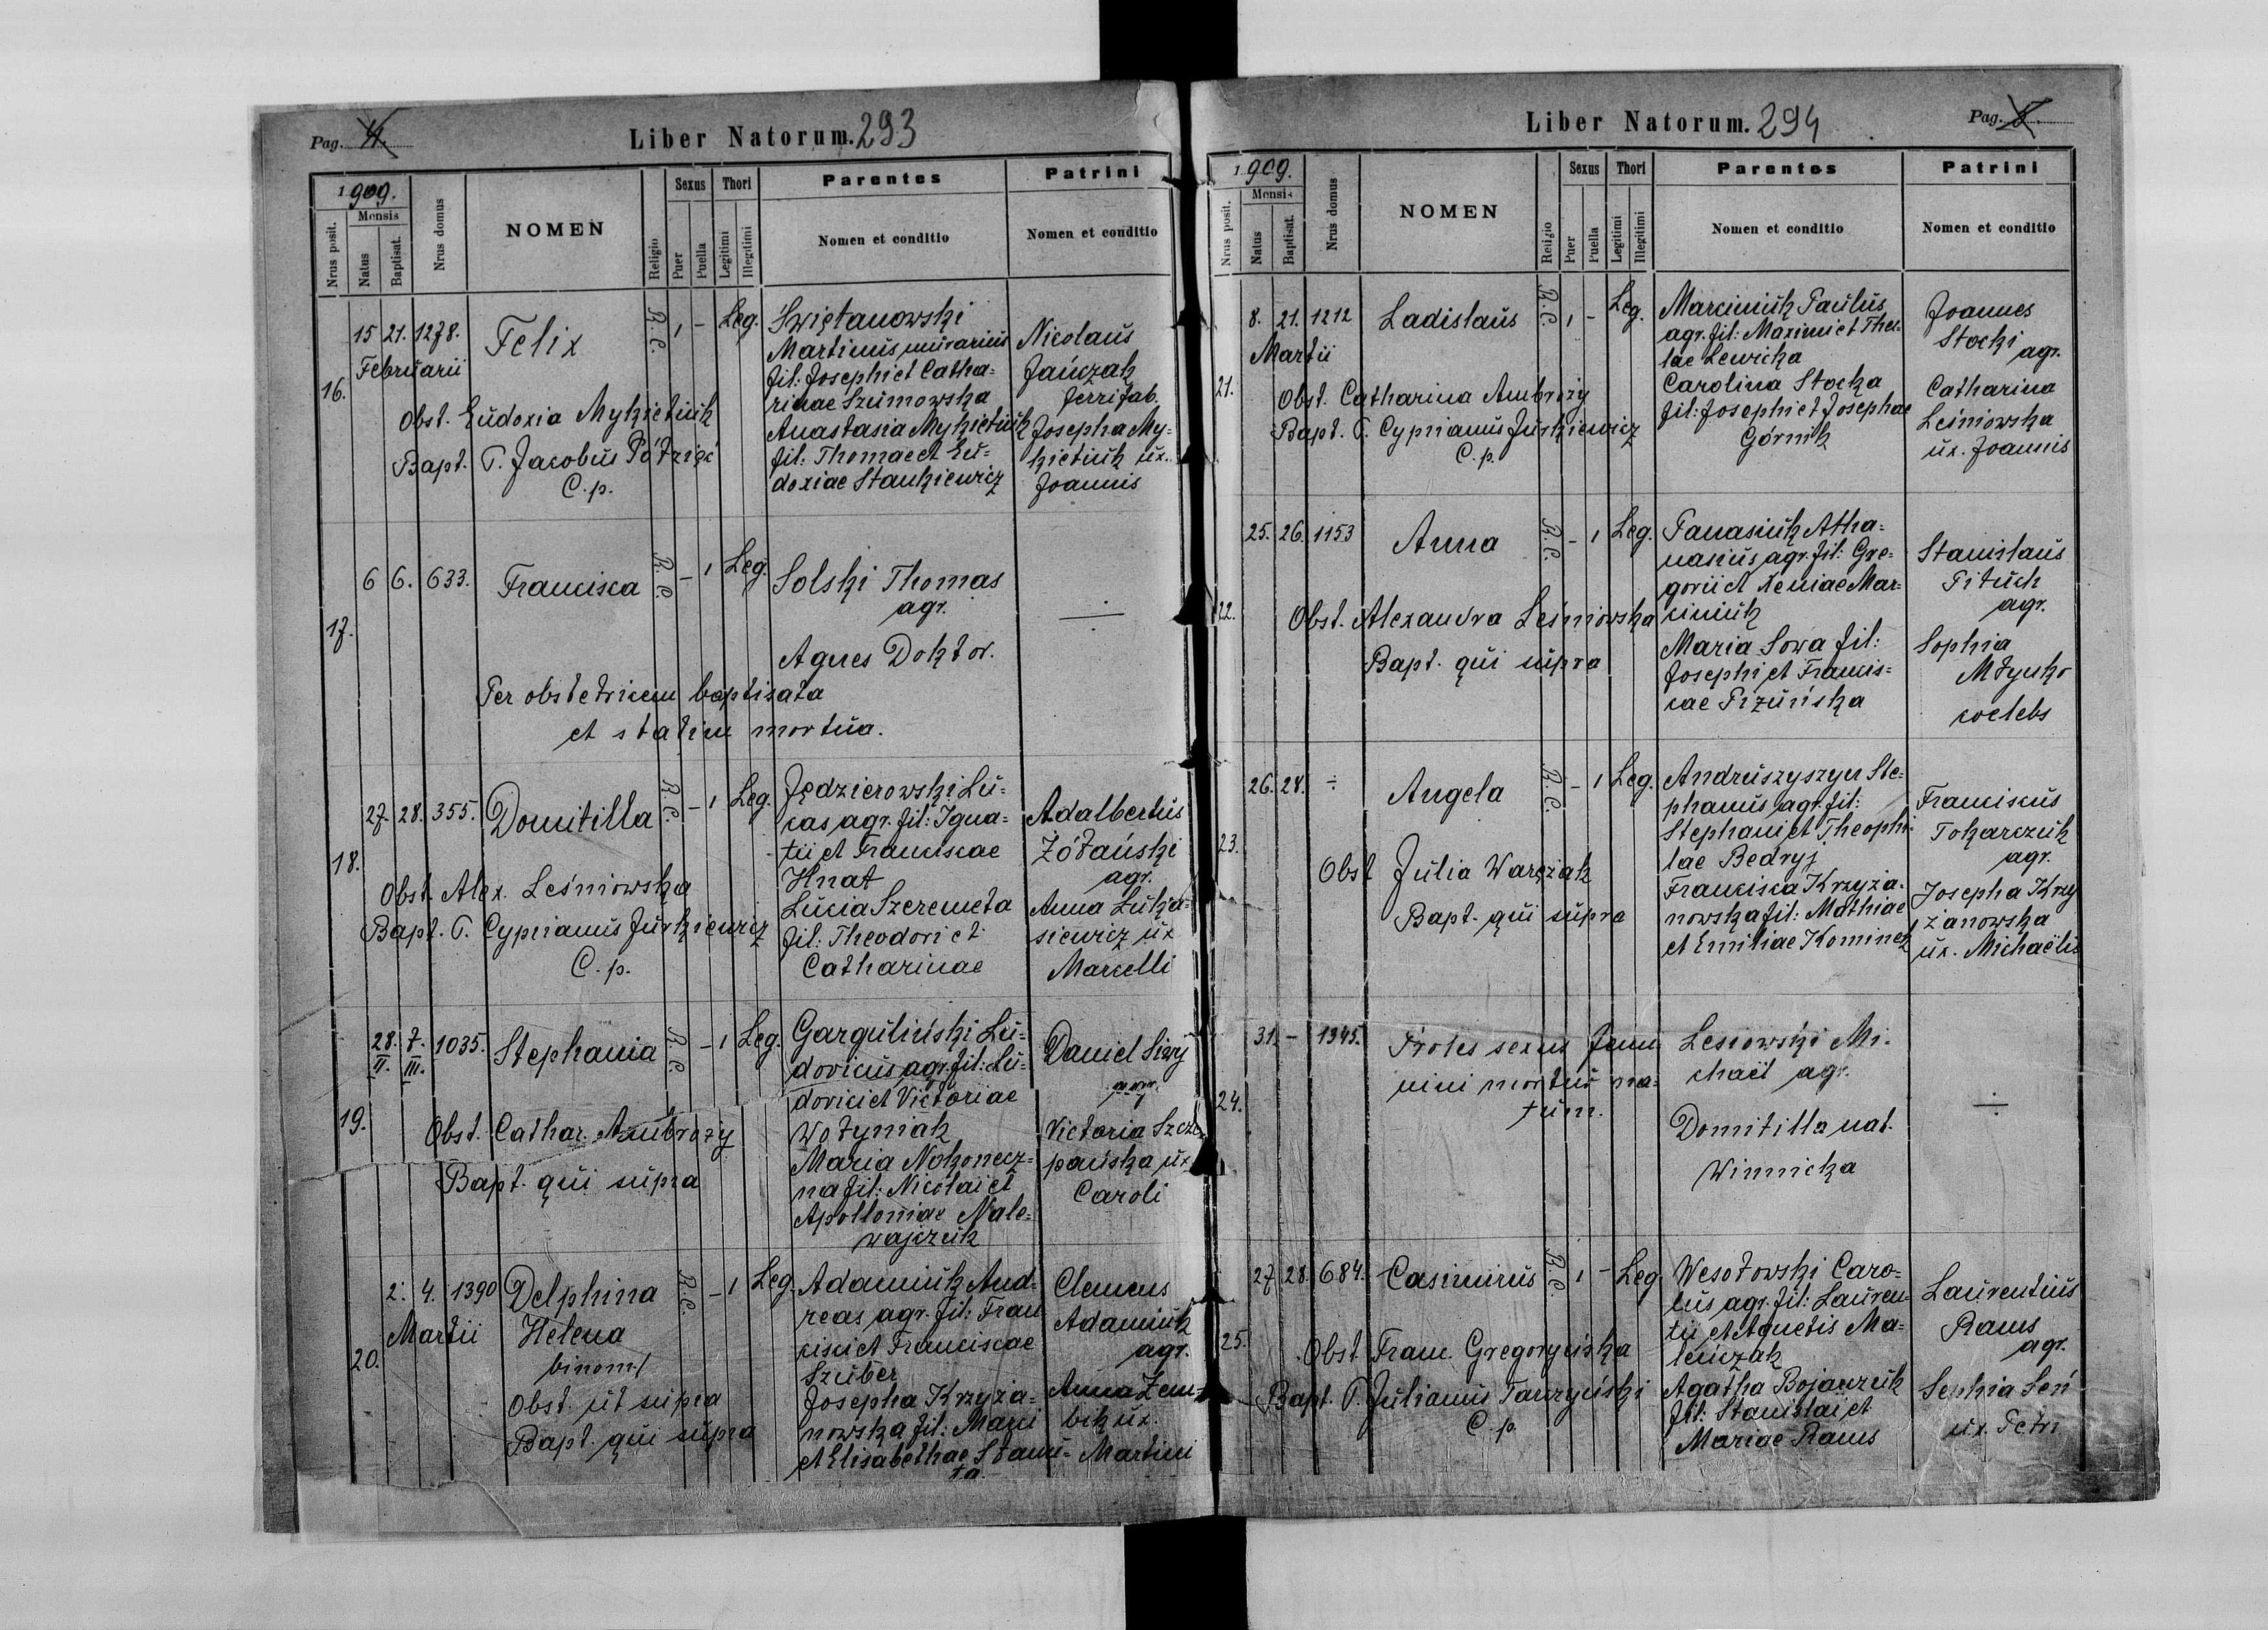 Pag. 4.
Liber Natorum. 293
1909.
Nrus posit.
Mensis
Natus
Baptisat.
Nrus domus
NOMEN
Religio
Sexus
Puer
Puella
Thori
Legitimi
Illegitimi
Parentes
Nomen et conditio
Patrini
Nomen et conditio
16.
15 21. 1278.
Februarii
Felix
R. C.
1 - Leg.
Obst. Eudoxia Mykietiuk
Bapt. P. Jacobus Półzięć
C. p.
Świętanowski
Martinus murarius
fil: Josephi et Catha=
rinae Szumowska
Anastasia Mykietiuk
fil: Thomae et Eu=
doxiae Stankiewicz
Nicolaus
Jańczak
ferrifab.
Josepha My=
kietiuk ux.
Joannis
17.
6 6. 633.
Francisca
R. C.
- 1 Leg.
Per obstetricem baptisata
et statim mortua.
Solski Thomas
agr.
Agnes Doktor.
18.
27. 28. 355.
Domitilla
R. C.
- 1 Leg.
Obst. Alex. Leśniowska
Bapt. P. Cyprianus Jurkiewicz
C. p.
Jędzierowski Lu=
cas agr. fil: Igna=
tii et Franciscae
Hnat
Lucia Szeremeta
fil: Theodori et
Catharinae
Adalbertus
Żółański
agr.
Anna Łuka=
siewicz ux
Marcelli
19.
28. 7. 1035.
II. III.
Stephania
R. C.
- 1 Leg.
Obst. Cathar. Ambroży
Bapt. qui supra
Garguliński Lu=
dovicus agr. fil: Lu=
dovici et Victoriae
Wołyniak
Maria Nakonecz=
na fil: Nicolai et
Apolloniae Nale=
wajczuk
Daniel Siwy
agr.
Victoria Szcze
pańska ux
Caroli
20.
2. 4. 1390
Martii
Delphina
Helena
binom/
R. C.
- 1 Leg.
Obst. ut supra
Bapt. qui supra
Adamiuk And=
reas agr. fil: Fran
cisci et Franciscae
Szuber
Josepha Krzyża=
nowska fil: Marci
et Elisabethae Stamu=
ta.
Clemens
Adamiuk
agr.
Anna Zem=
bik ux.
Martini
Liber Natorum. 294
Pag.
1909.
Nrus posit.
Mensis
Natus
Baptisat.
Nrus domus
NOMEN
Religio
Sexus
Puer
Puella
Thori
Legitimi
Illegitimi
Parentes
Nomen et conditio
Patrini
Nomen et conditio
21.
8. 21. 1212
Martii
Ladislaus
R. C.
1 - Leg.
Obst. Catharina Ambroży
Bapt. P. Cyprianus Jurkiewicz
C. p.
Marciniuk Paulus
agr. fil: Maximi et Thec=
lae Lewicka
Carolina Stocka
fil: Josephi et Josephae
Górnik
Joannes
Stocki
agr.
Catharina
Leśniowska
ux. Joannis
22.
25. 26. 1153
Anna
R. C.
- 1 Leg.
Obst. Alexandra Leśniowska
Bapt. qui supra
Panasiuk Atha=
nasius agr. fil: Gre=
gorii et Xeniae Mar=
ciniuk
Maria Sowa fil:
Josephi et Francis=
cae Pizuńska
Stanislaus
Pituch
agr.
Sophia
Młynko
coelebs
23.
26. 28. ÷
Angela
R. C.
- 1 Leg.
Obst Julia Warężak
Bapt. qui supra
Andruszyszyn Ste=
phanus agr. fil:
Stephani et Theophi=
lae Bedryj
Francisca Krzyża=
nowska fil: Mathiae
et Emiliae Kominek
Franciscus
Tokarczuk
agr.
Josepha Krzy
żanowska
ux. Michaëlis
24.
31. - 1345.
Proles sexus femi
nini mortuo na=
tum.
Lesiowski Mi=
chaël agr.
Domitilla nat.
Winnicka
25.
27 28. 684.
Casimirus
R. C.
1 - Leg.
Obst. Franc. Gregoryńska
Bapt. P. Julianus Tarzyński
C. p.
Wesołowski Caro=
lus agr. fil: Lauren=
tii et Agnetis Ma=
leńczak
Agatha Bojarczuk
fil: Stanislai et
Mariae Raws
Laurentius
Raws
agr.
Sophia Seń
ux. Petri